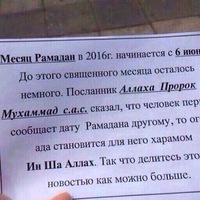 Месяц Рамадан в 2016г. начинается с 6 июн
До этого священного месяца осталось
немного. Посланник Аллаха Пророк
Мухаммад с.а.с. сказал, что человек перв
сообщает дату Рамадана другому, то ог
ада становится для него харамом
Ин Ша Аллах. Так что делитесь этo
новостью как можно больше.